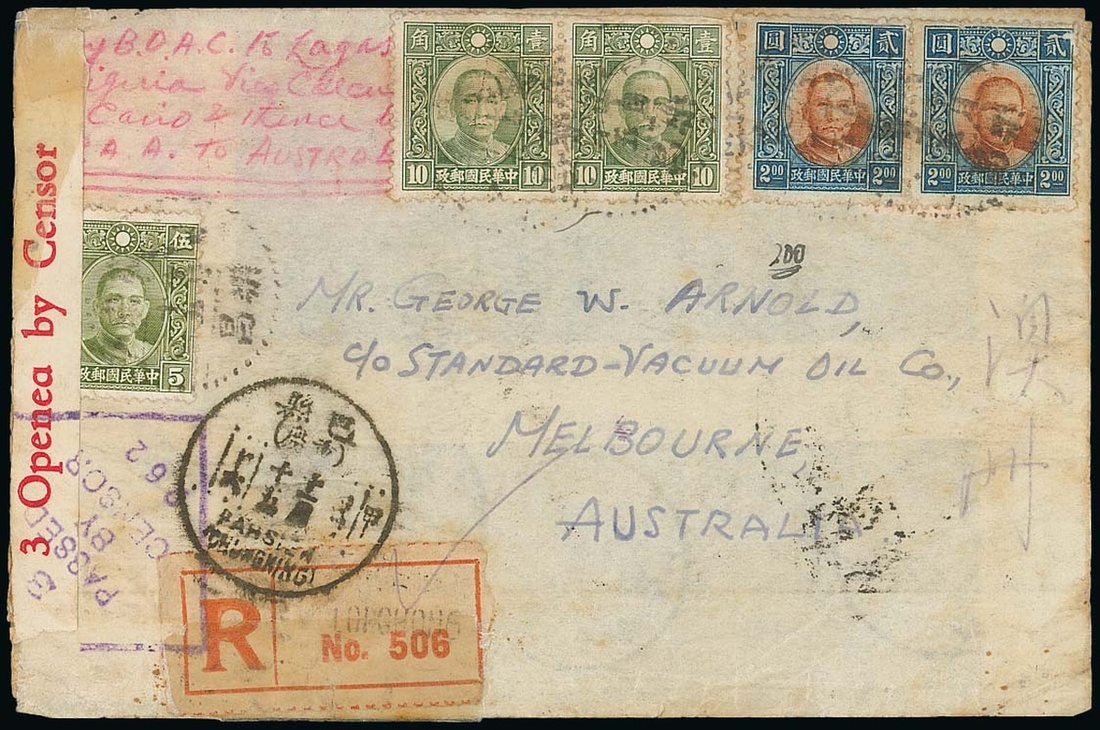 B.O.A.C. to Lagos
Nigeria Via
Cairo & thence
A.A. TO AUSTRAL
角 壹
10 10
中華民國郵政
角 壹
10 10
中華民國郵政
圓 貳
2.00 2.00
中華民國郵政
圓 貳
2.00 2.00
中華民國郵政
伍
5
中華民國郵政
200
MR. GEORGE W. ARNOLD,
c/o STANDARD-VACUUM OIL Co.,
MELBOURNE,
AUSTRALIA
澳
州
3 Opened by Censor
PASSED
BY
CENSOR
62
巴
PAHSIEN
(CHUNGKING)
R
No. 506